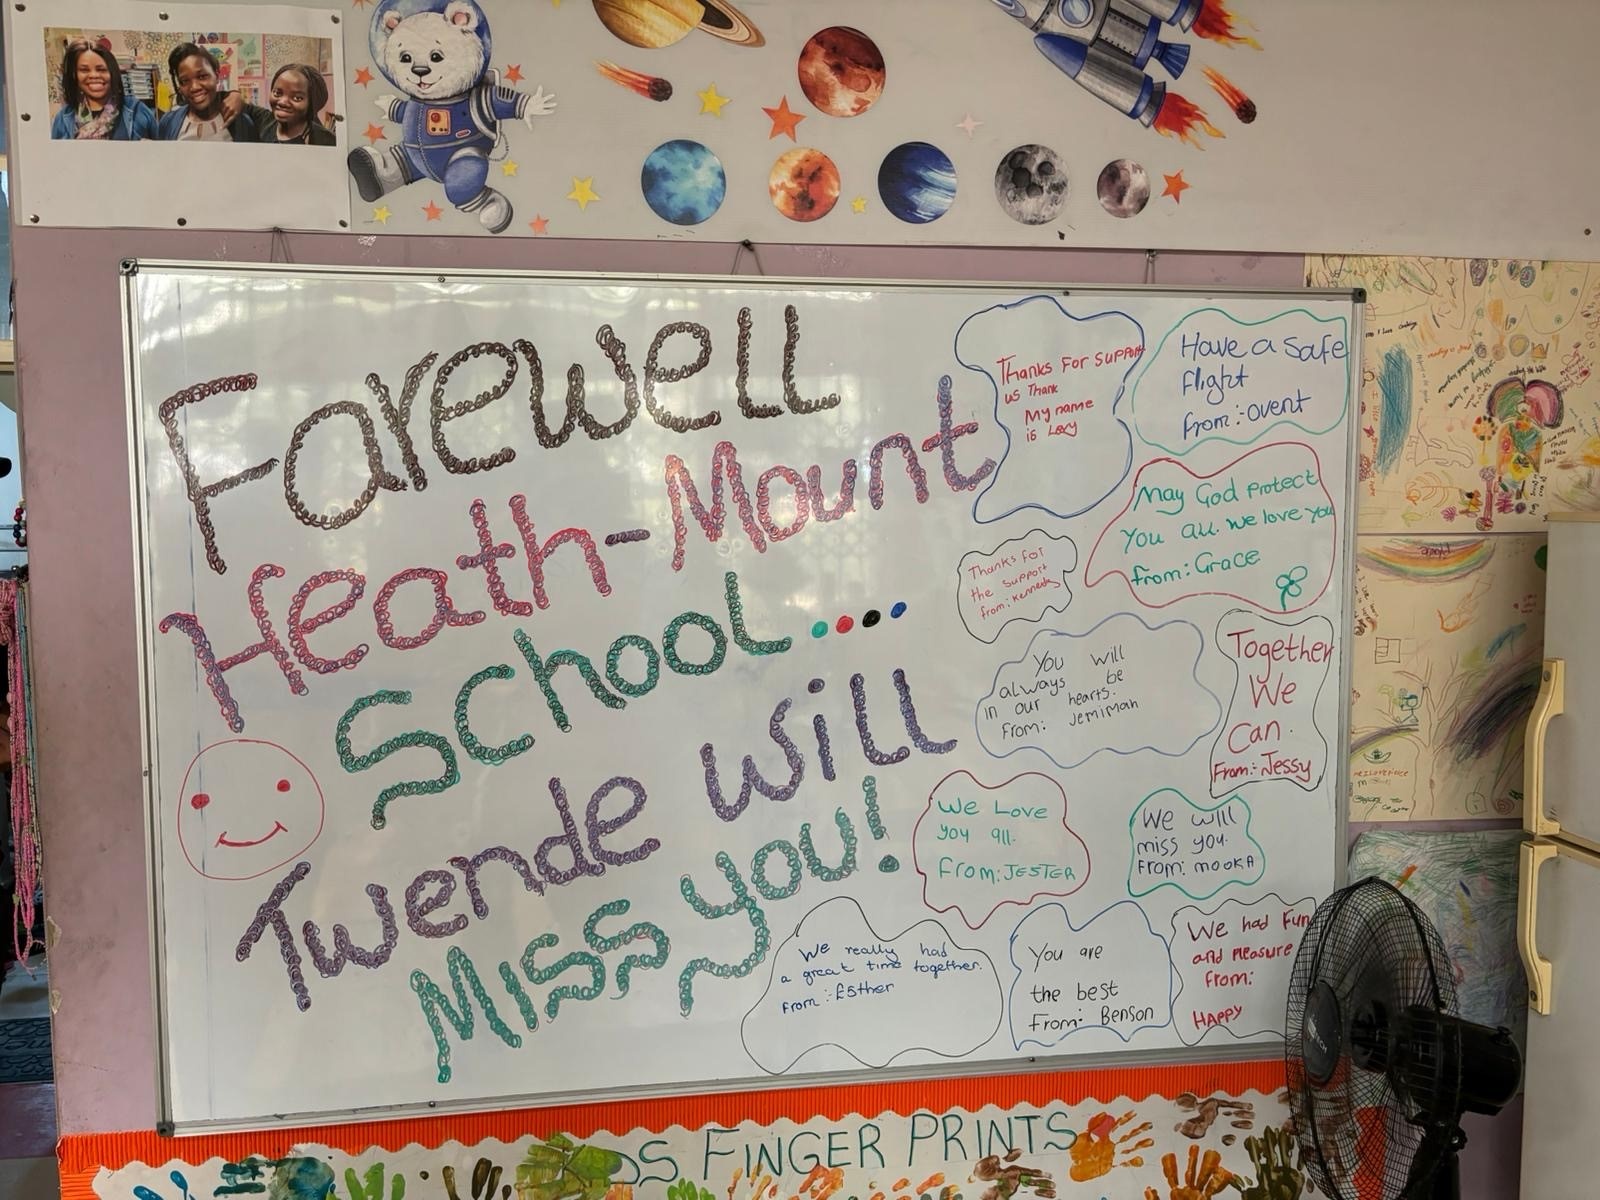 Farewell
Heath-Mount
School....
Twende will
Miss you!
Thanks For support
us Thank
My name
is Lexy
Have a Safe
flight
from:-ovent
May God Protect
You all. we love you
from: Grace
Thanks for
the support
from: Kennedy
You will
always be
in our hearts.
From: Jemimah
Together
We
Can.
From:- Jessy
We Love
you all.
From: JESTER
We will
miss you.
From: MOOKA
We really had
a great time together.
From :- Esther
You are
the best
From: Benson
We had Fun
and Pleasure
From:
HAPPY
FINGER PRINTS